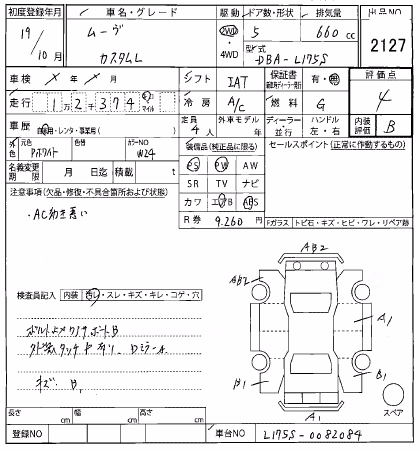 初度登録年月 車名・グレード 駆動 ドア数・形状 排気量 出品NO
19/10月 ムーヴ カスタムL 2WD・4WD 5 660cc 2127
型式 DBA-L175S
車検 ×年 ×月 シフト IAT 保証書 有・無 評価点
走行 12374 マイル 冷房 A/C 燃料 G 4
車歴 自家用・レンタ・事業用( ) 定員 4人 外車モデル 年 ディーラー・並行 ハンドル 左・右 内装評価 B
外色 色替 カラーNO W24 装備品(純正品に限る) セールスポイント(正常に作動するもの)
名義変更期限 月 日迄 積載 t PS PW AW
注意事項(欠品・修復・不具合箇所および状態) SR TV ナビ
・AC効き悪い カワ エアB ABS
R券 9,260円 Fガラス トビ石・キズ・ヒビ・ワレ・リペア跡
AB2
AB2
検査員記入 内装 汚れ・スレ・キズ・キレ・コゲ・穴
A1
外装タッチ
B1
キズ B1
B1
A1
スペア
長さ cm 幅 cm 高さ cm
登録NO 車台NO L175S-0082084